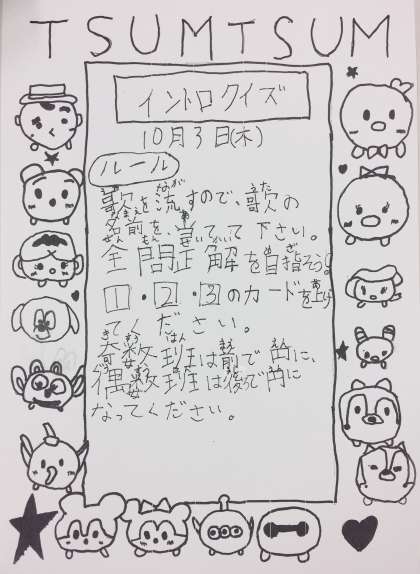 TSUMTSUM
イントロクイズ
10月3日(木)
ルール
歌を流すので、歌の
名前を、当てて下さい。
全問正解を目指そう!
1・2・3のカードを上げ
てください。
奇数班は前で円に、
偶数班は後ろで円に
なってください。